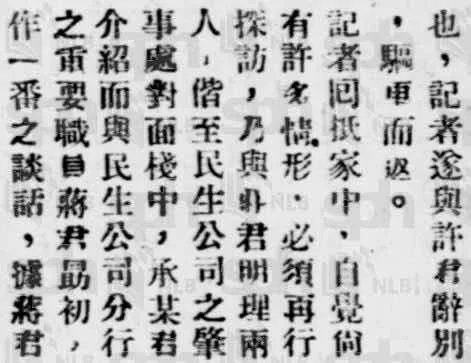 也，記者遂與許君辭別
，驅車而返。
記者囘抵家中，自覺尙
有許多情形，必須再行
探訪，乃與君明理兩
人，偕至民生公司之肇
事處對面棧中，承某君
介紹而與民生公司分行
之重要職員蔣君勗初，
作一番之談話，據蔣君